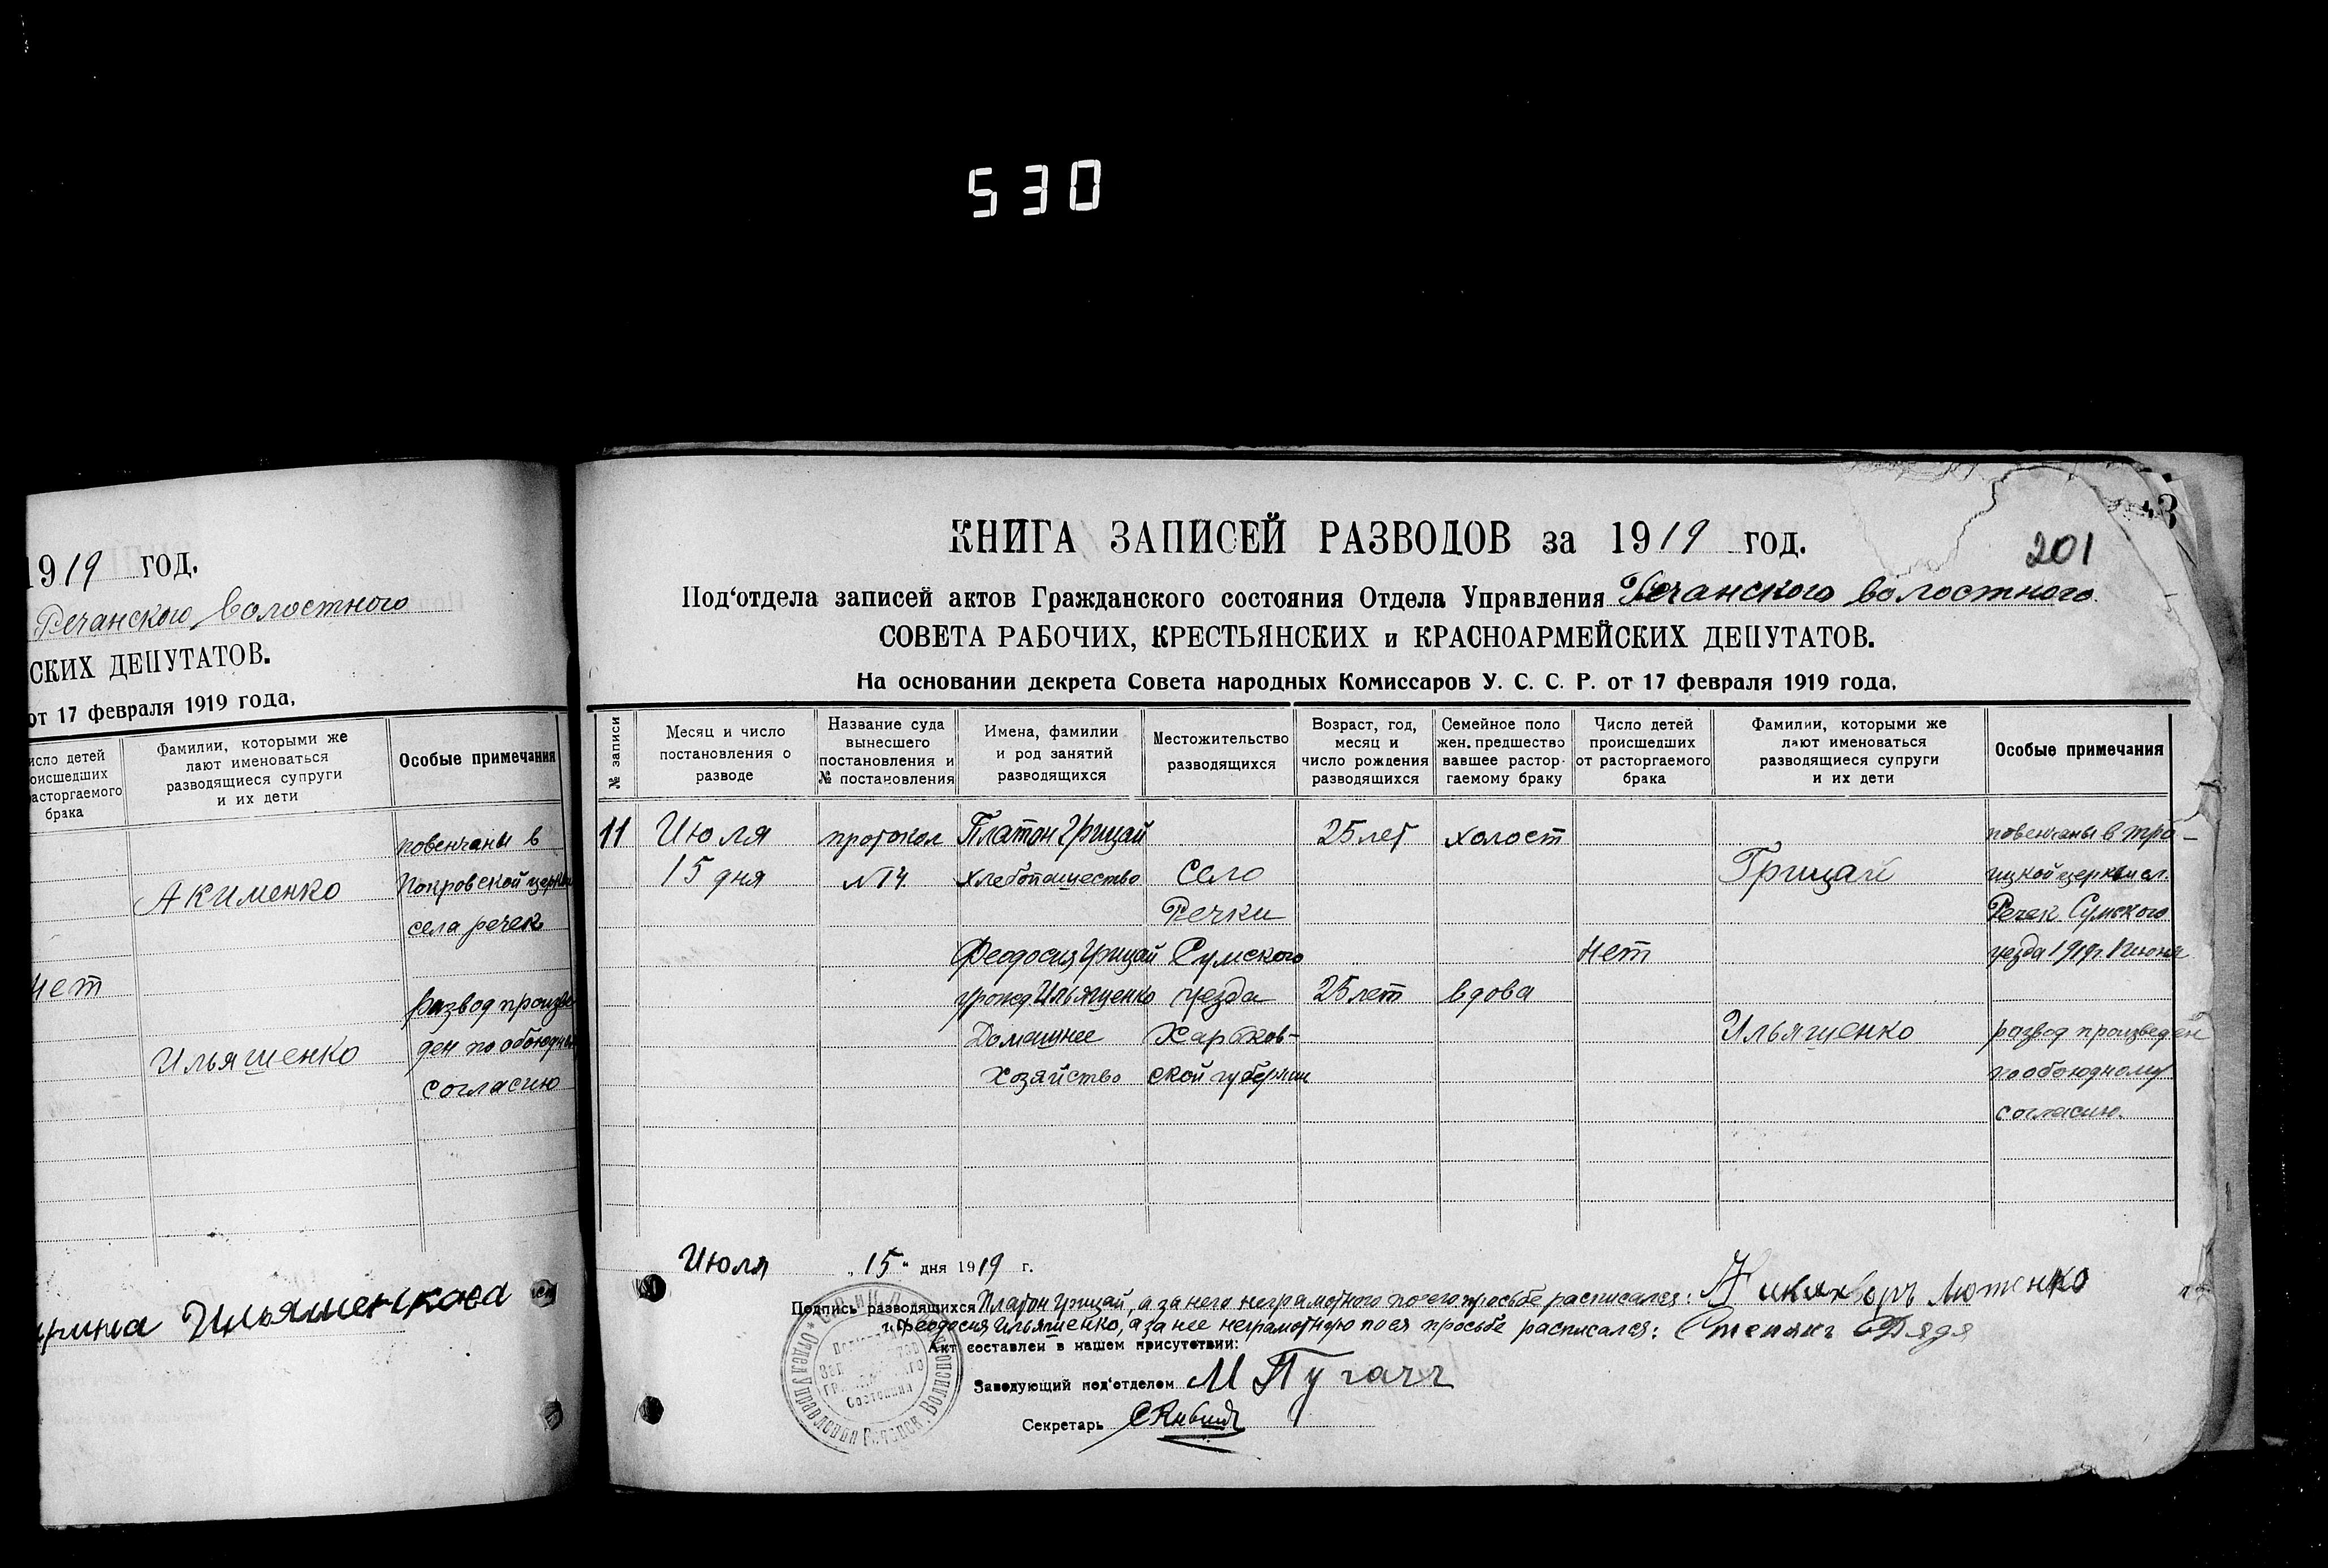 530
1919 год.
Речанского волостного
СКИХ ДЕПУТАТОВ.
от 17 февраля 1919 года,
исло детей
оисшедших
асторгаемого
брака
Фамилии, которыми же
лают именоваться
разводящиеся супруги
и их дети
Особые примечания
повенчаны в
Акименко
Покровской церкви
села речек
нет
Развод произве
ден по обоюдному
Ильяшенко
согласию
Ильяшенкова
43
201
КНИГА ЗАПИСЕЙ РАЗВОДОВ за 1919 год.
Под‘отдела записей актов Гражданского состояния Отдела Управления Речанского волостного
СОВЕТА РАБОЧИХ, КРЕСТЬЯНСКИХ и КРАСНОАРМЕЙСКИХ ДЕПУТАТОВ.
На основании декрета Совета народных Комиссаров У. С. С. Р. от 17 февраля 1919 года,
№ записи
Месяц и число
постановления о
разводе
Название суда
вынесшего
постановления и
№ постановления
Имена, фамилии
и род занятий
разводящихся
Местожительство
разводящихся
Возраст, год,
месяц и
число рождения
разводящихся
Семейное поло
жен. предшество
вавшее растор-
гаемому браку
Число детей
происшедших
от расторгаемого
брака
Фамилии, которыми же
лают именоваться
разводящиеся супруги
и их дети
Особые примечания
11 Июля протокол Платон Грицай 25 лет холост повенчаны в тро-
15 дня №14 хлебопашество село Грицай ицкой церкви сл.
Речки Речек Сумского
Феодосия Грицай Сумского нет уезда 1919г. 1 июня
урожд Ильяшенко уезда 25 лет вдова
Домашнее Харьков- Ильяшенко развод произведен
хозяйство ской губернии по обоюдному
согласию.
Июля „15“ дня 1919 г.
Подпись разводящихся Платон Грицай, а за него неграмотного по его просьбе расписался: Никихвор Лютенко
и Феодосия Ильяшенко, а за нее неграмотную по ея просьбе расписался: Степан Дядя
Акт составлен в нашем присутствии:
Заведующий под‘отделом М Пугач
Секретарь